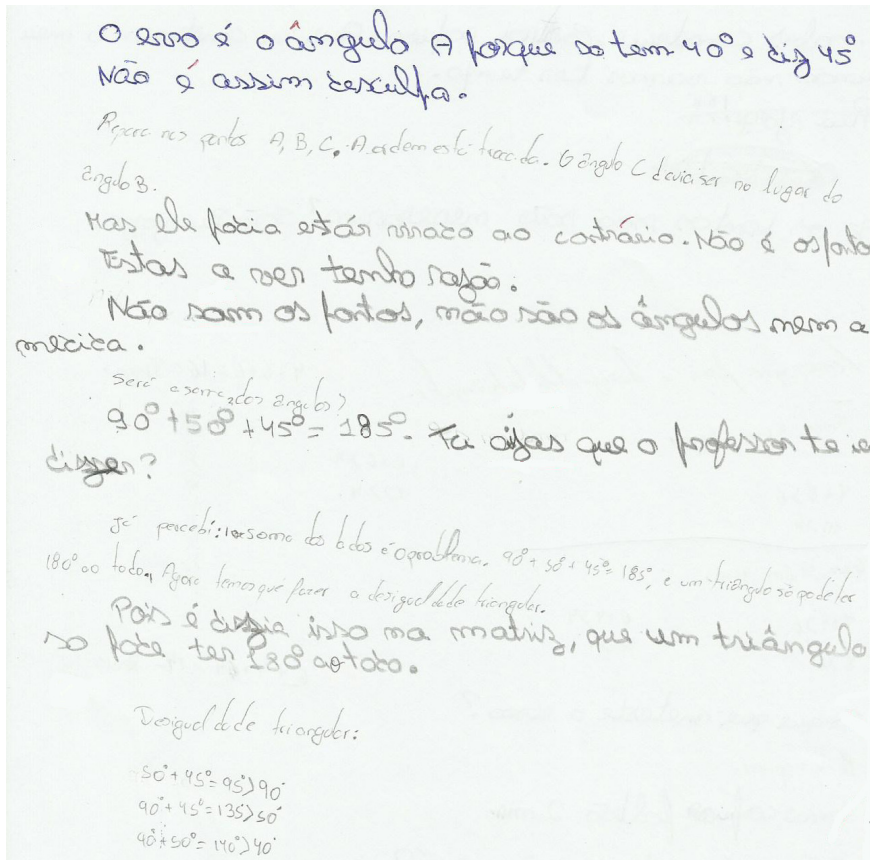 O erro é o ângulo A porque so tem 40° e diz 45°
Não é assim desculpa.
Repara nos pontos A, B, C. A ordem está trocada. O ângulo C devia ser no lugar do
ângulo B.
Mas ele podia estár virado ao contrário. Não é os ponto
Estas a ver tenho razão.
Não som os pontos, não são os ângulos nem a
medida.
Será a soma dos angulos?
90° + 50° + 45° = 185°. Tu ojas que o professor te ie
dizer?
Já percebi: a soma dos lados é o problema. 90° + 50° + 45° = 185°, e um triângulo só pode ter
180° ao todo. Agora temos que fazer a desigualdade triangular.
Pois é dizia isso na matriz, que um triângulo
so pode ter 180° ao todo.
Desigualdade triangular:
50° + 45° = 95° > 90°
90° + 45° = 135 > 50°
90° + 50° = 140° > 40°